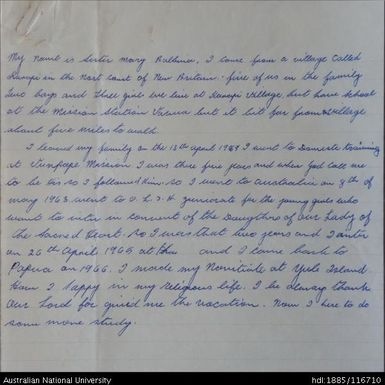 My name is sister Mary Kathleen. I come from a village called
in the Nort coust of New Britain. five of us in the family
two boys and three girls we live at village but have school
at the Mission Station but it bit far from village
about five miles to walk.
I leaved my family on the 18th april 1959 I went to Domestic training
at Vunapope Mission I was there five years and when God call me
to be sis so I followed Him. so I went to Australia on 8th of
may 1963 went to O. L. S. H juniorate for the young girls who
want to enter in convent of the Daughters of Our Lady of
the Sacred Heart. so I was that two years and I enter
on 26th April 1965 at and I came back to
Papua on 1966. I made my Novitiate at Yule Island
How I happy in my religious life. I be always thank
Our Lord for gived me the vocation. Now I here to do
some more study.
Australian National University
hdl:1885/116710